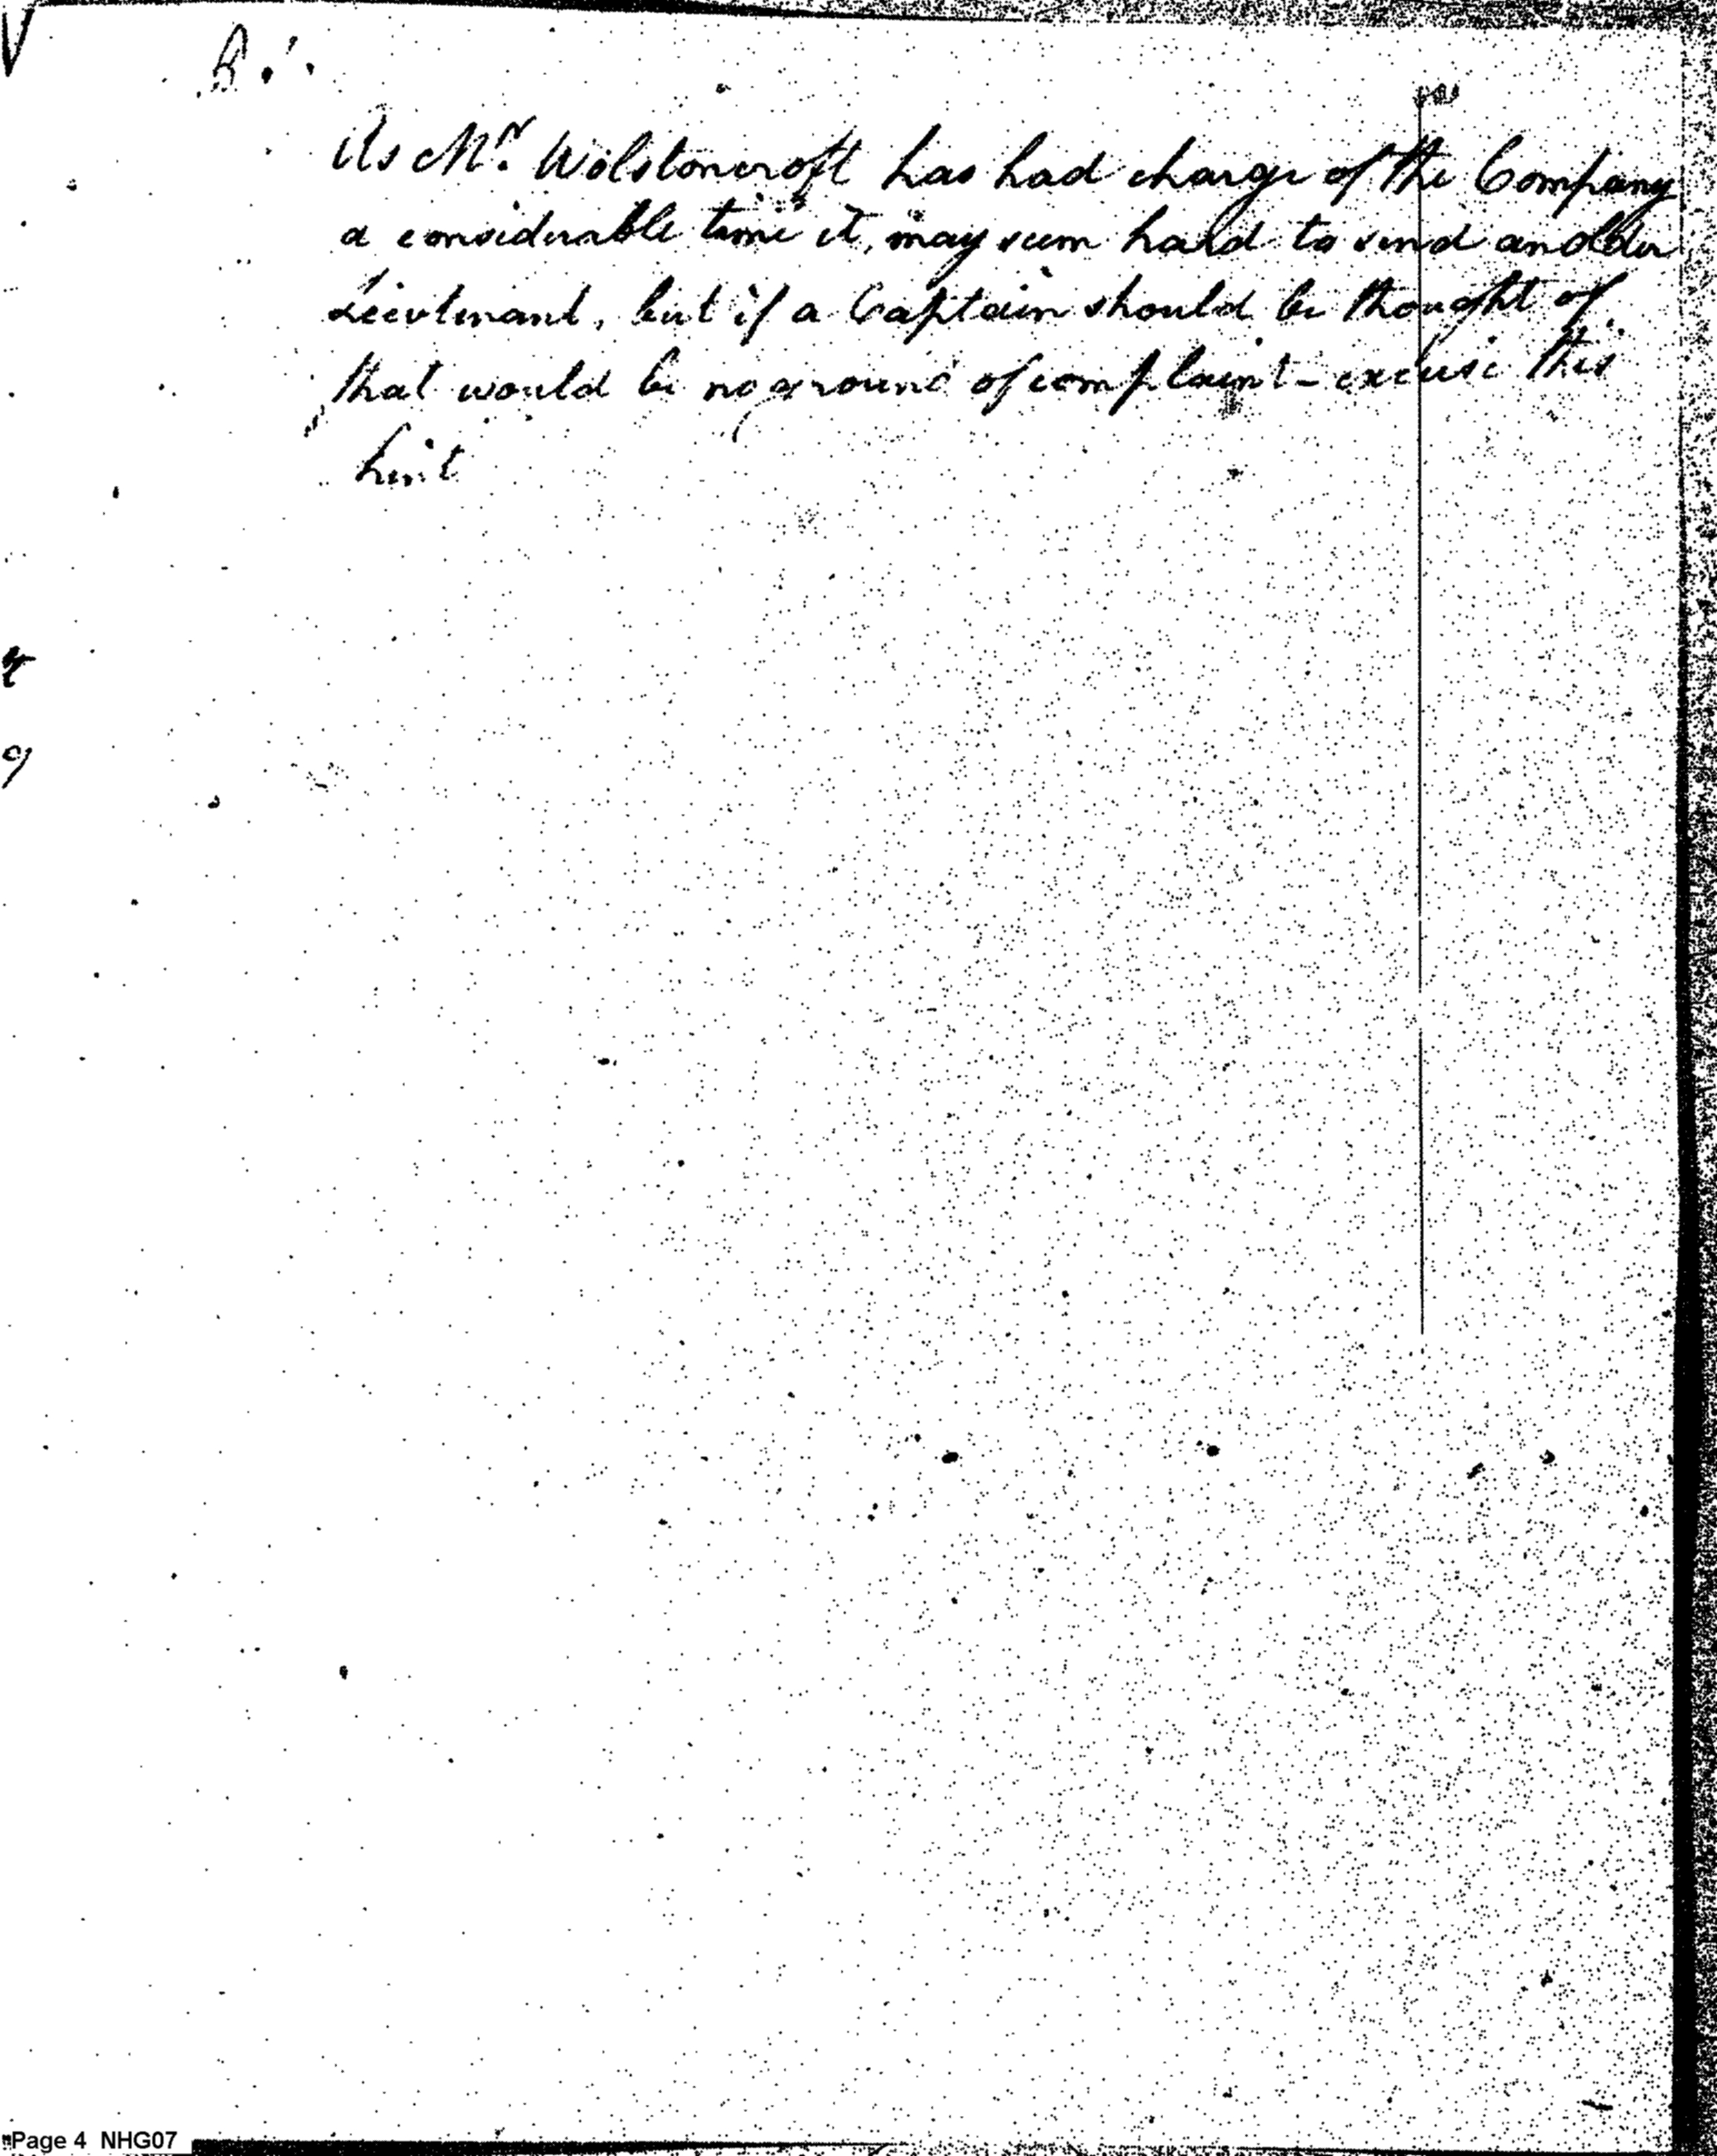 As Mr. Wolstoncroft has had charge of the Company
a considerable time it, may seem hard to send an older
Lieutenant, but if a Captain should be thought of
that would be no ground of complaint - excuse this
hint
Page 4 NHG07